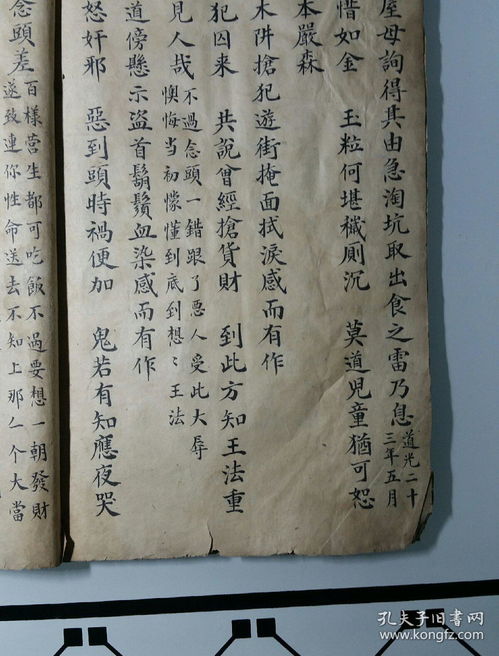 屋母詢得其由急淘坑取出食之雷乃息
道光二十
三年五月
惜如金　玉粒何堪穢厠沉　莫道兒童猶可恕
本嚴森
木阱搶犯遊街掩面拭淚感而有作
犯囚來　共說曾經搶貨財　到此方知王法重
見人哉
不過念頭一錯跟了惡人受此大辱
懊悔当初懞懂到底到想〻王法
道傍懸示盜首鬍鬚血染感而有作
怒奸邪　惡到頭時禍便加　鬼若有知應夜哭
念頭差
百樣营生都可吃飯不過要想一朝發財
遂致連你性命送去不知上那亻个大當
孔夫子旧书网
www.kongfz.com